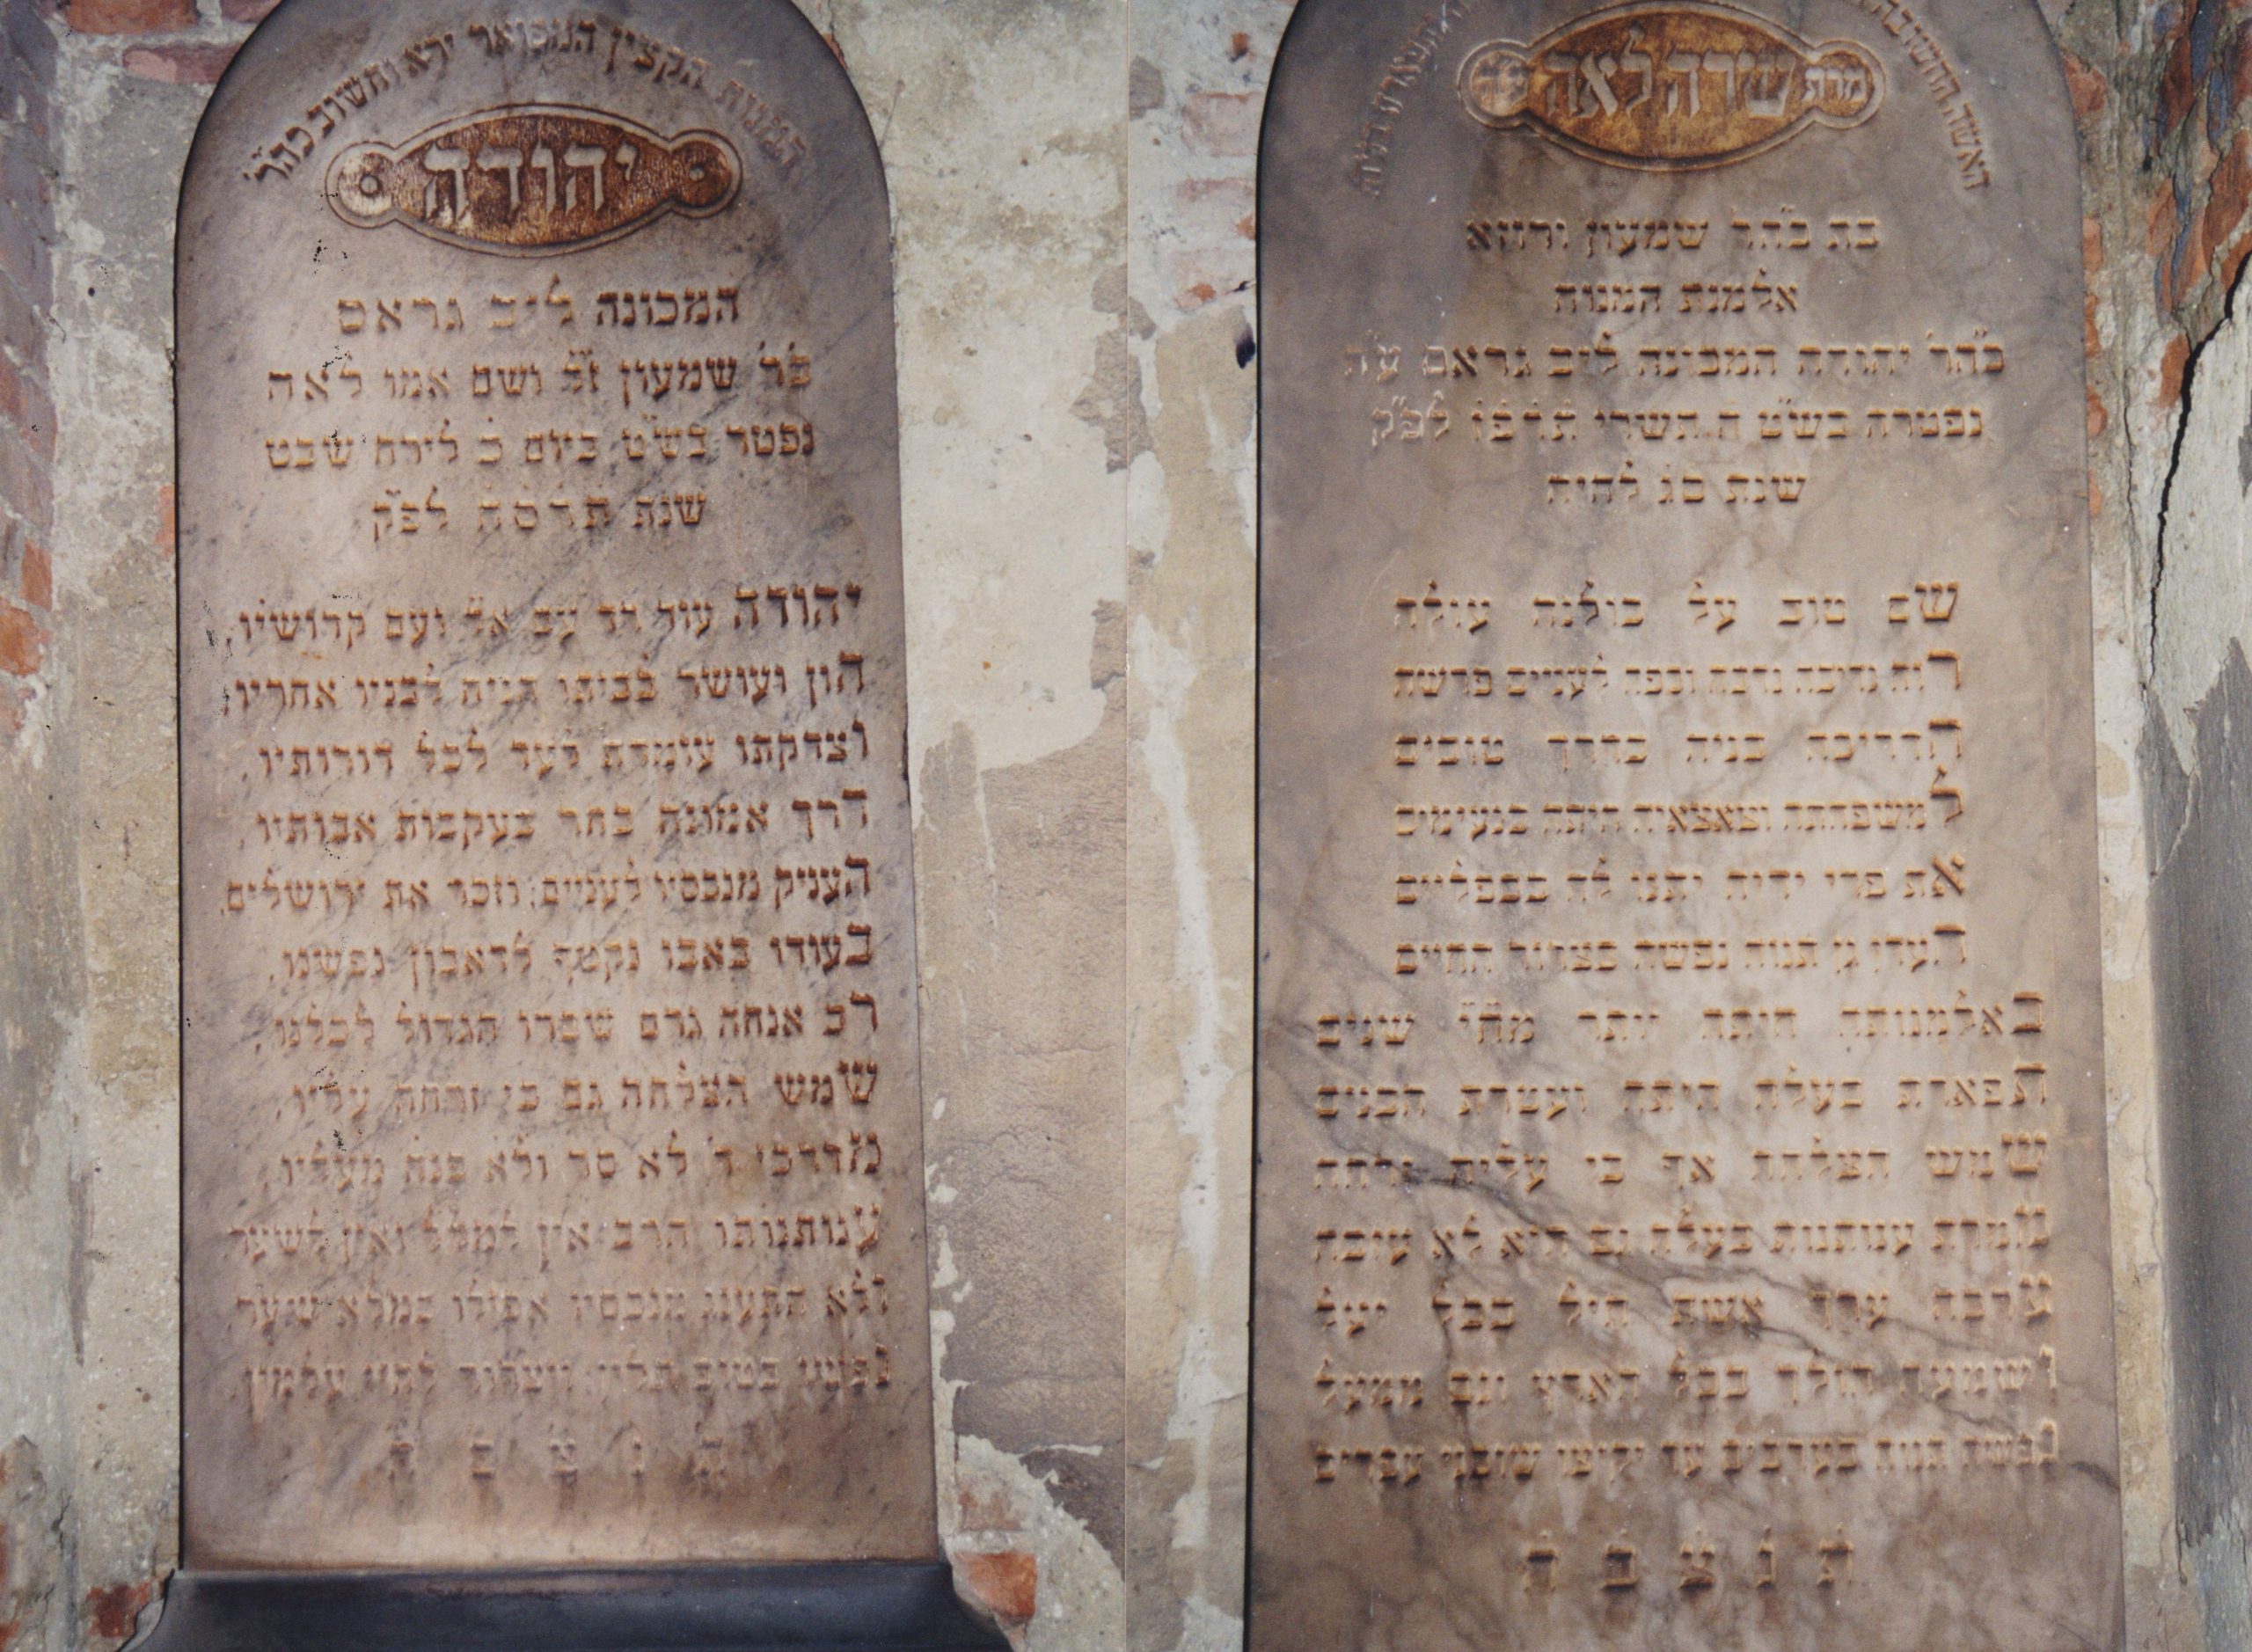 המנוח הקצין המפואר ירא וחשוב כהר׳
יהודה
המכונה ליב גראס
כ״ר שמעון ז״ל ושם אמו לאה
נפטר בש״ט ביום כ לירח שבט
שנת תרסח לפ״ק
יהודה עוד רד עם אל ועם קדושיו,
הון ועושר בביתו הניח לבניו אחריו,
וצדקתו עומדת לעד לכל דורותיו,
דרך אמונה בחר בעקבות אבותיו,
העניק מנכסיו לעניים; וזכר את ירושלים,
בעודו באבו נקטף לדאבון נפשנו,
רב אנחה גרם שברו הגדול לכלנו,
שמש הצלחה גם כי זרחה עליו,
מדרכי ה׳ לא סר ולא פנה מעליו,
ענותנותו הרב אין למלל ואין לשער
ולא התענג מנכסיו אפילו כמלא שיער
נפשו בטוב תלין, ויצרור לחיי עלמין,
ת נ צ ב ה
האשה החשובה
מרת שירה לאה
בת כ״הר שמעון ורוזא
אלמנת המנוח
כ״הר יהודה המכונה ליב גראס ע״ה
נפטרה בש״ט ה תשרי תרפז לפ״ק
שנת סג לחיה
שם טוב על כולנה עולה
רוח נדיבה נדבה וכפה לעניים פרשה
הדריכה בניה בדרך טובים
למשפחתה וצאצאיה היתה בנעימים
את פרי ידיה יתנו לה בכפליים
העדן גן תנוח נפשה בצרור החיים
באלמנותה היתה יותר מח״י שנים
תפארת בעלה היתה ועטרת הבנים
שמש הצלחה אף כי עליה זרחה
מומדת ענותנות בעלה גם היא לא עזבה
ערכה ערך אשת חיל בכל יעל
ושמעה הולך בכל הארץ וגם ממעל
נפשה תנוח בערבים עד יקיצו שוכני עפרים
ת נ צ ב ה